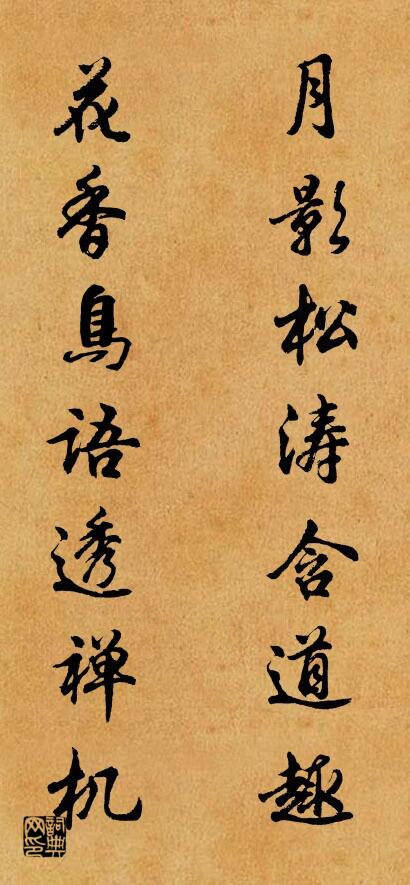 月影松涛含道趣
花香鳥语透禅机